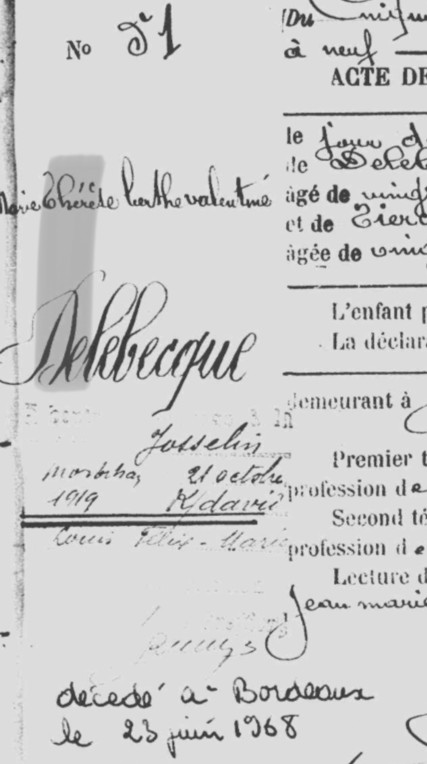 No 51
Marie Thérèse berthe valentine
Delebecque
Josselin
Morbihan 21 octobre
1919
Louis Félix-Marie
décedé à Bordeaux
le 23 juin 1968
Du
à neuf
ACTE DE
le jour d
de Deleb
âgé de vingt
et de Tierc
âgée de vin
L'enfant p
La déclara
demeurant à
Premier t
profession de
Second té
profession de
Lecture d
Jean marie